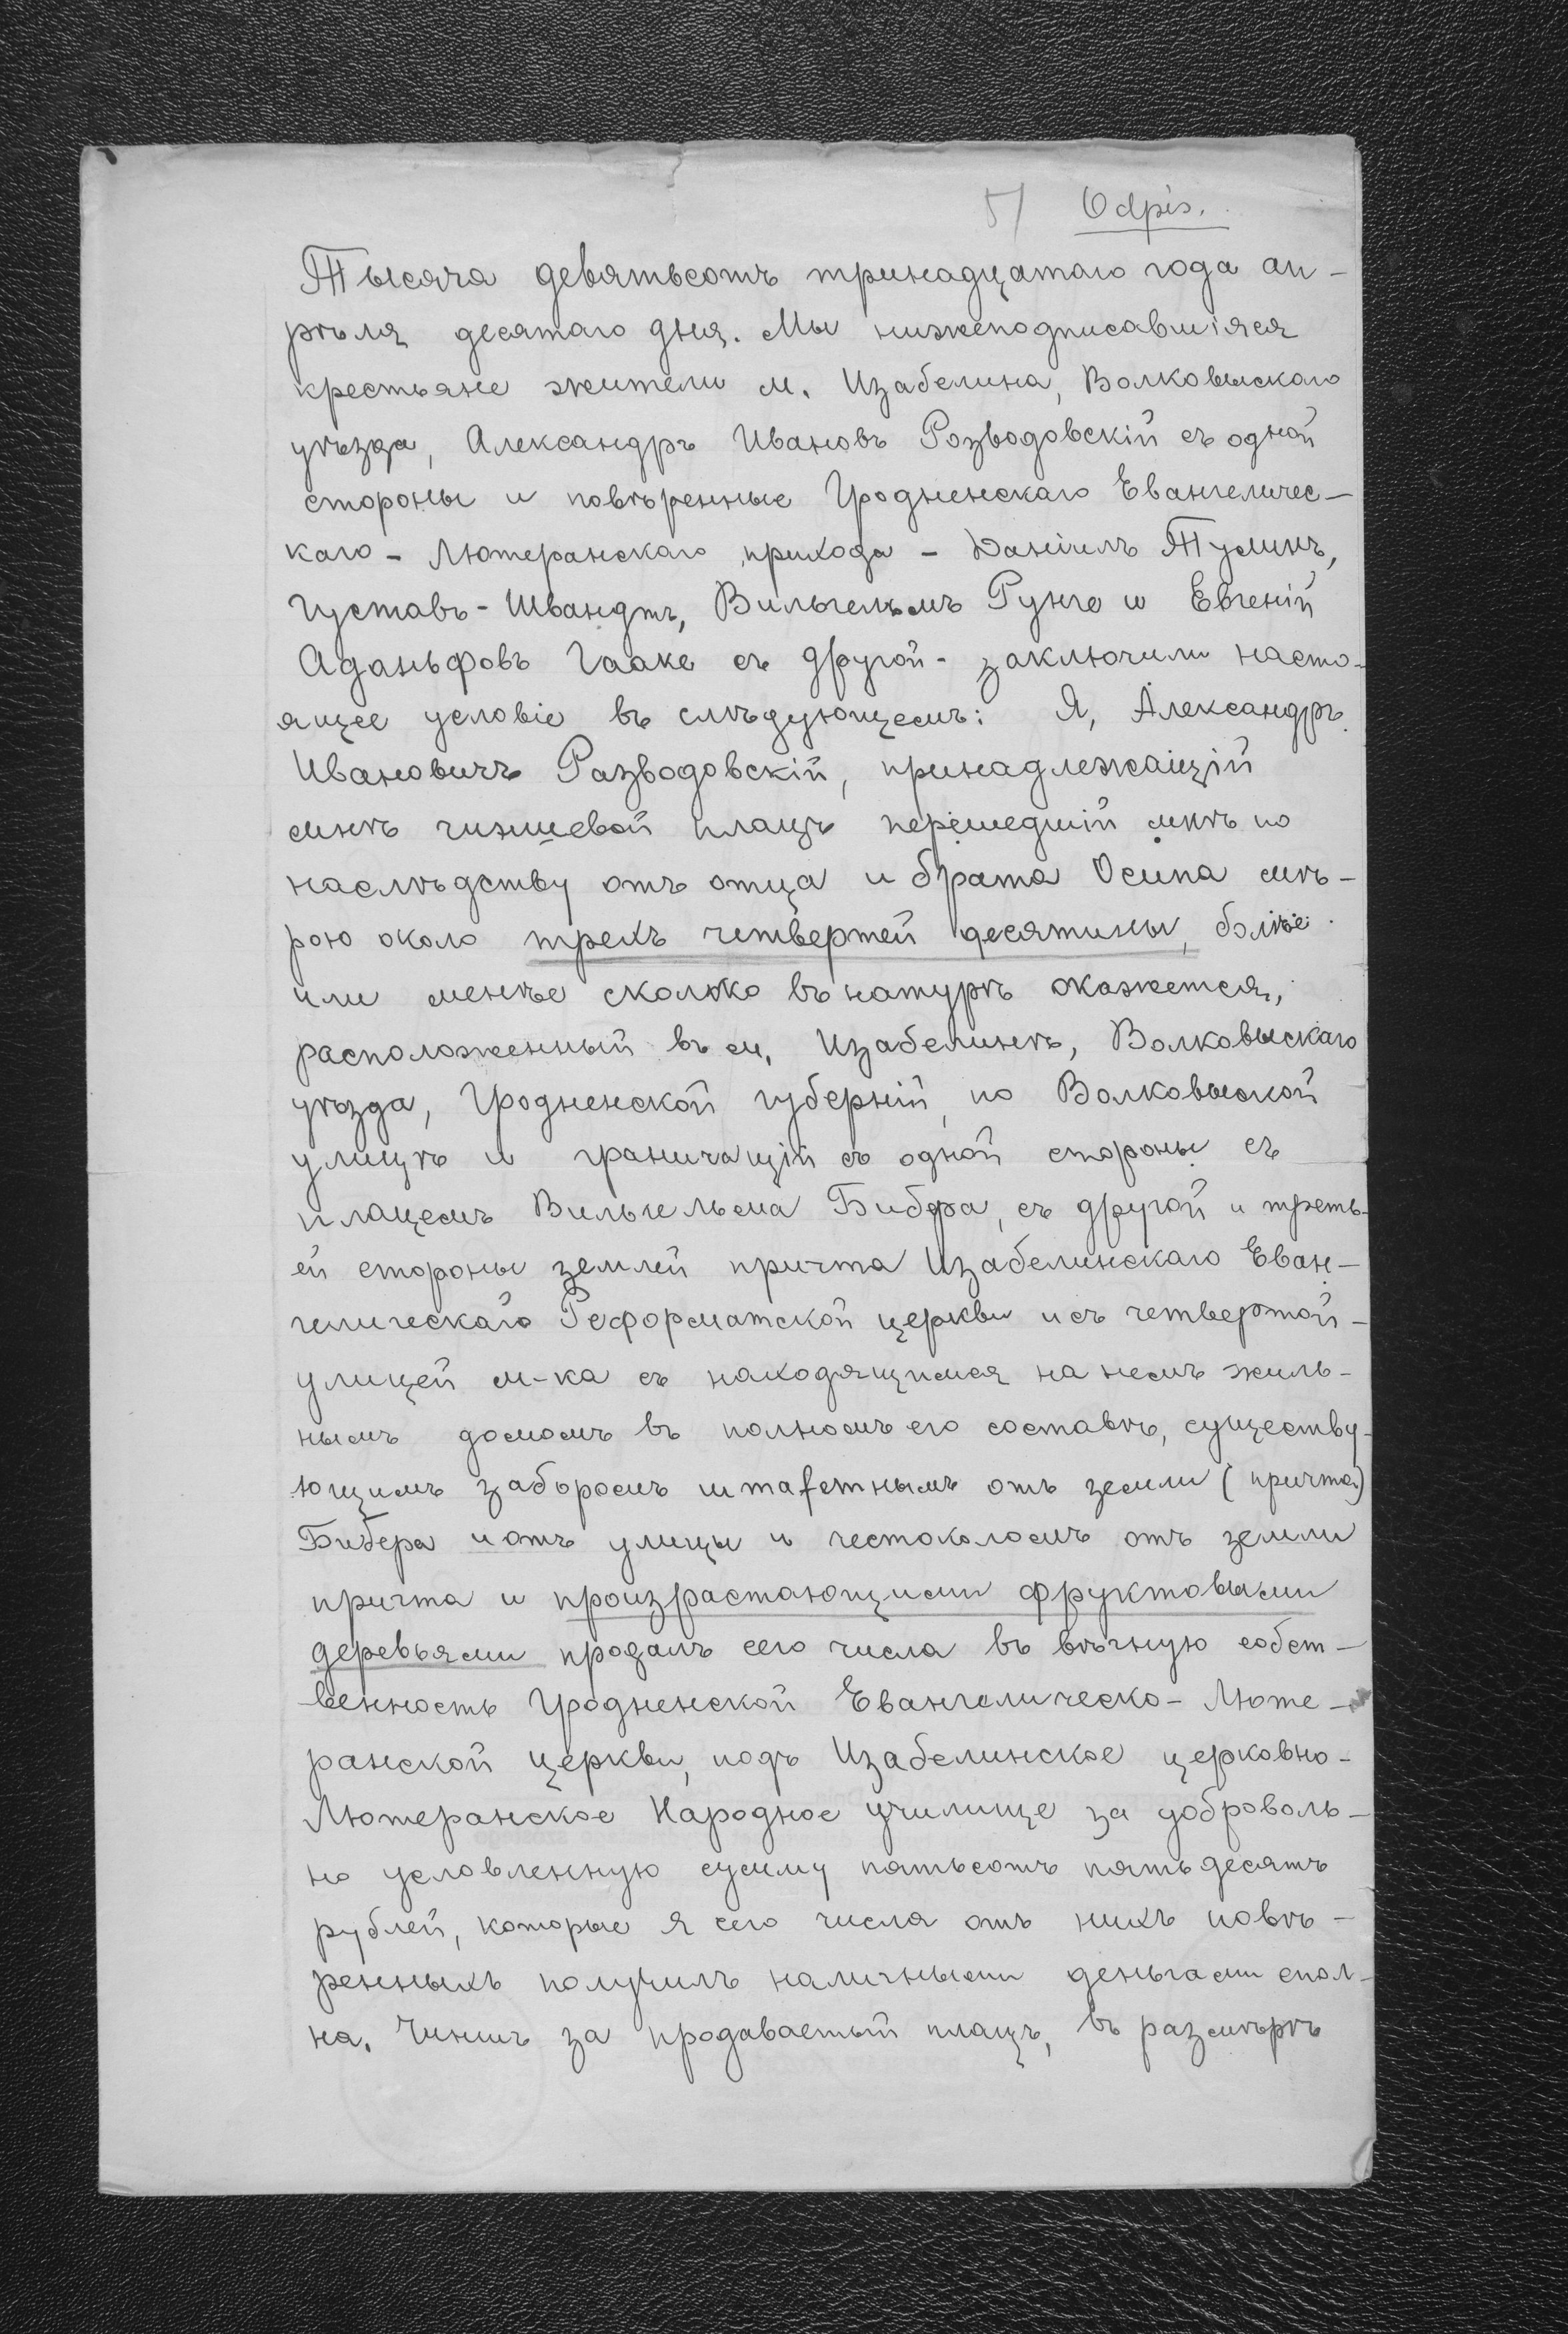 51 Odpis.
Тысяча девятьсотъ тринадцатаго года ап-
рѣля десятаго дня. Мы нижеподписавшіяся
крестьяне жители м. Изабелина, Волковыскаго
уѣзда, Александръ Ивановъ Розводовскій съ одной
стороны и повѣренные Гродненскаго Евангеличес-
каго - Лютеранскаго прихода - Даніилъ Тумикъ,
Густавъ - Швандтъ, Вильгельмъ Рунге и Евгеній
Адольфовъ Гааке съ другой - заключили насто-
ящее условіе въ слѣдующемъ: Я, Александръ
Ивановичъ Разводовскій, принадлежащій
мнѣ чиншевой плацъ перешедшій мнѣ по
наслѣдству отъ отца и брата Осипа мѣ-
рою около трехъ четвертей десятины, болѣе
или менѣе сколько въ натурѣ окажется,
расположенный въ м. Изабелинѣ, Волковыскаго
уѣзда, Гродненской губерній, по Волковыской
улицѣ и граничащій съ одной стороны съ
плацемъ Вильгельма Бибера, съ другой и треть-
ей стороны землей причта Изабелинскаго Еван-
гелическаго Реформатской церкви и съ четвертой -
улицей м-ка съ находящимся на немъ жиль-
нымъ домомъ въ полномъ его составѣ, существу-
ющимъ заборомъ штафетнымъ отъ земли (причта)
Бибера и отъ улицы и честоколомъ отъ земли
причта и произрастающими фруктовыми
деревьями продалъ сего числа въ вѣчную собст-
венность Гродненской Евангелическо - Люте-
ранской церкви, подъ Изабелинское церковно-
Лютеранское Народное училище за доброволь-
но условленную сумму пятьсотъ пятьдесятъ
рублей, которые я сего числа отъ нихъ повѣ-
ренныхъ получилъ наличными деньгами спол-
на. Чиншъ за продаваемый плацъ, въ размѣрѣ